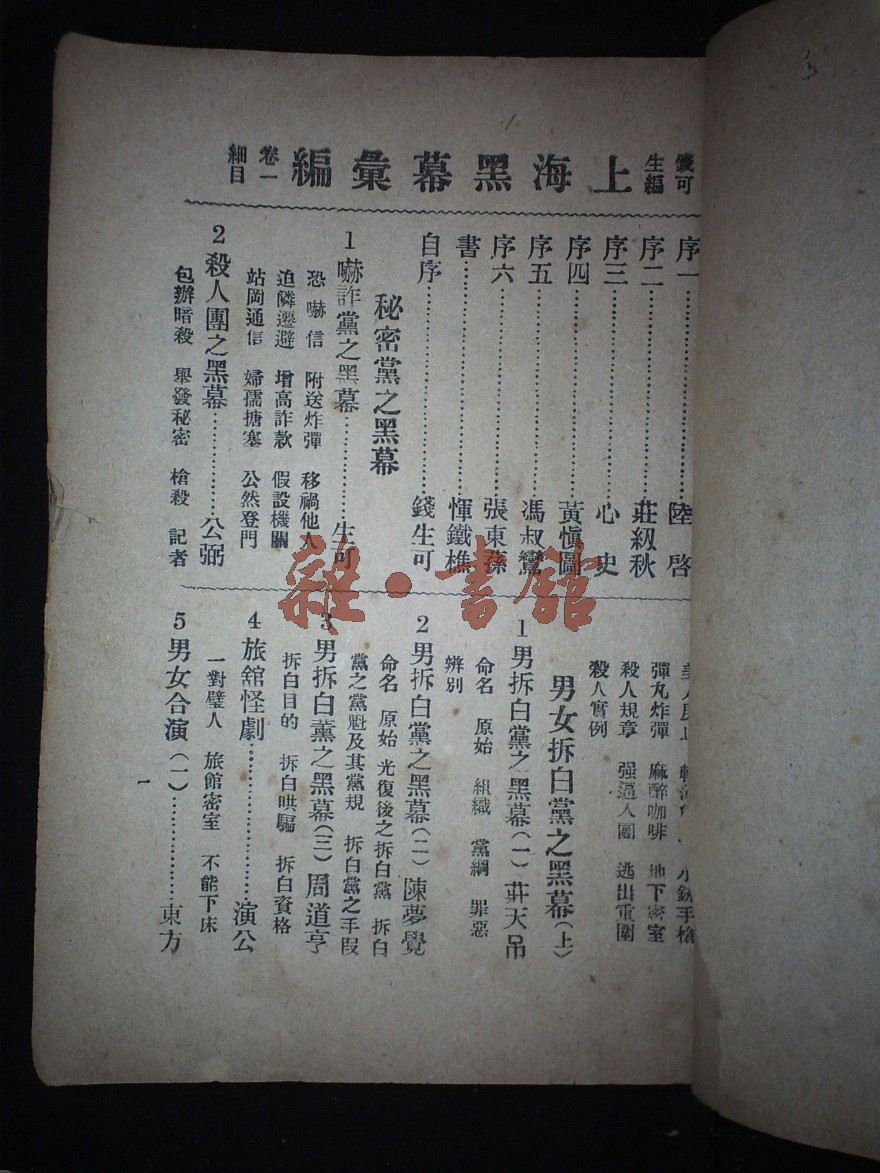 錢可
生編
上海黑幕彙編
卷一
細目
序一……陸 啓
序二……莊紉秋
序三……心 史
序四……黃愼圖
序五……馮叔鸞
序六……張東蓀
書……惲鐵樵
自序……錢生可
秘密黨之黑幕
1 嚇詐黨之黑幕……生可
恐嚇信 附送炸彈 移禍他人
迫隣遷避 增高詐款 假設機關
站岡通信 婦孺搪塞 公然登門
2 殺人團之黑幕……公弼
包辦暗殺 舉發秘密 槍殺 記者
彈丸炸彈 麻醉咖啡 地下密室
殺人規章 强逼入團 逃出重圍
殺人實例
男女拆白黨之黑幕(上)
1 男拆白黨之黑幕(一)莊天吊
命名 原始 組織 黨綱 罪惡
辨別
2 男拆白黨之黑幕(二)陳夢覺
命名 原始 光復後之拆白黨 拆白
黨之黨魁及其黨規 拆白黨之手段
3 男拆白黨之黑幕(三)周道亨
拆白目的 拆白哄騙 拆白資格
4 旅舘怪劇……演公
一對璧人 旅館密室 不能下床
5 男女合演(一)……東方
一
雜·書館